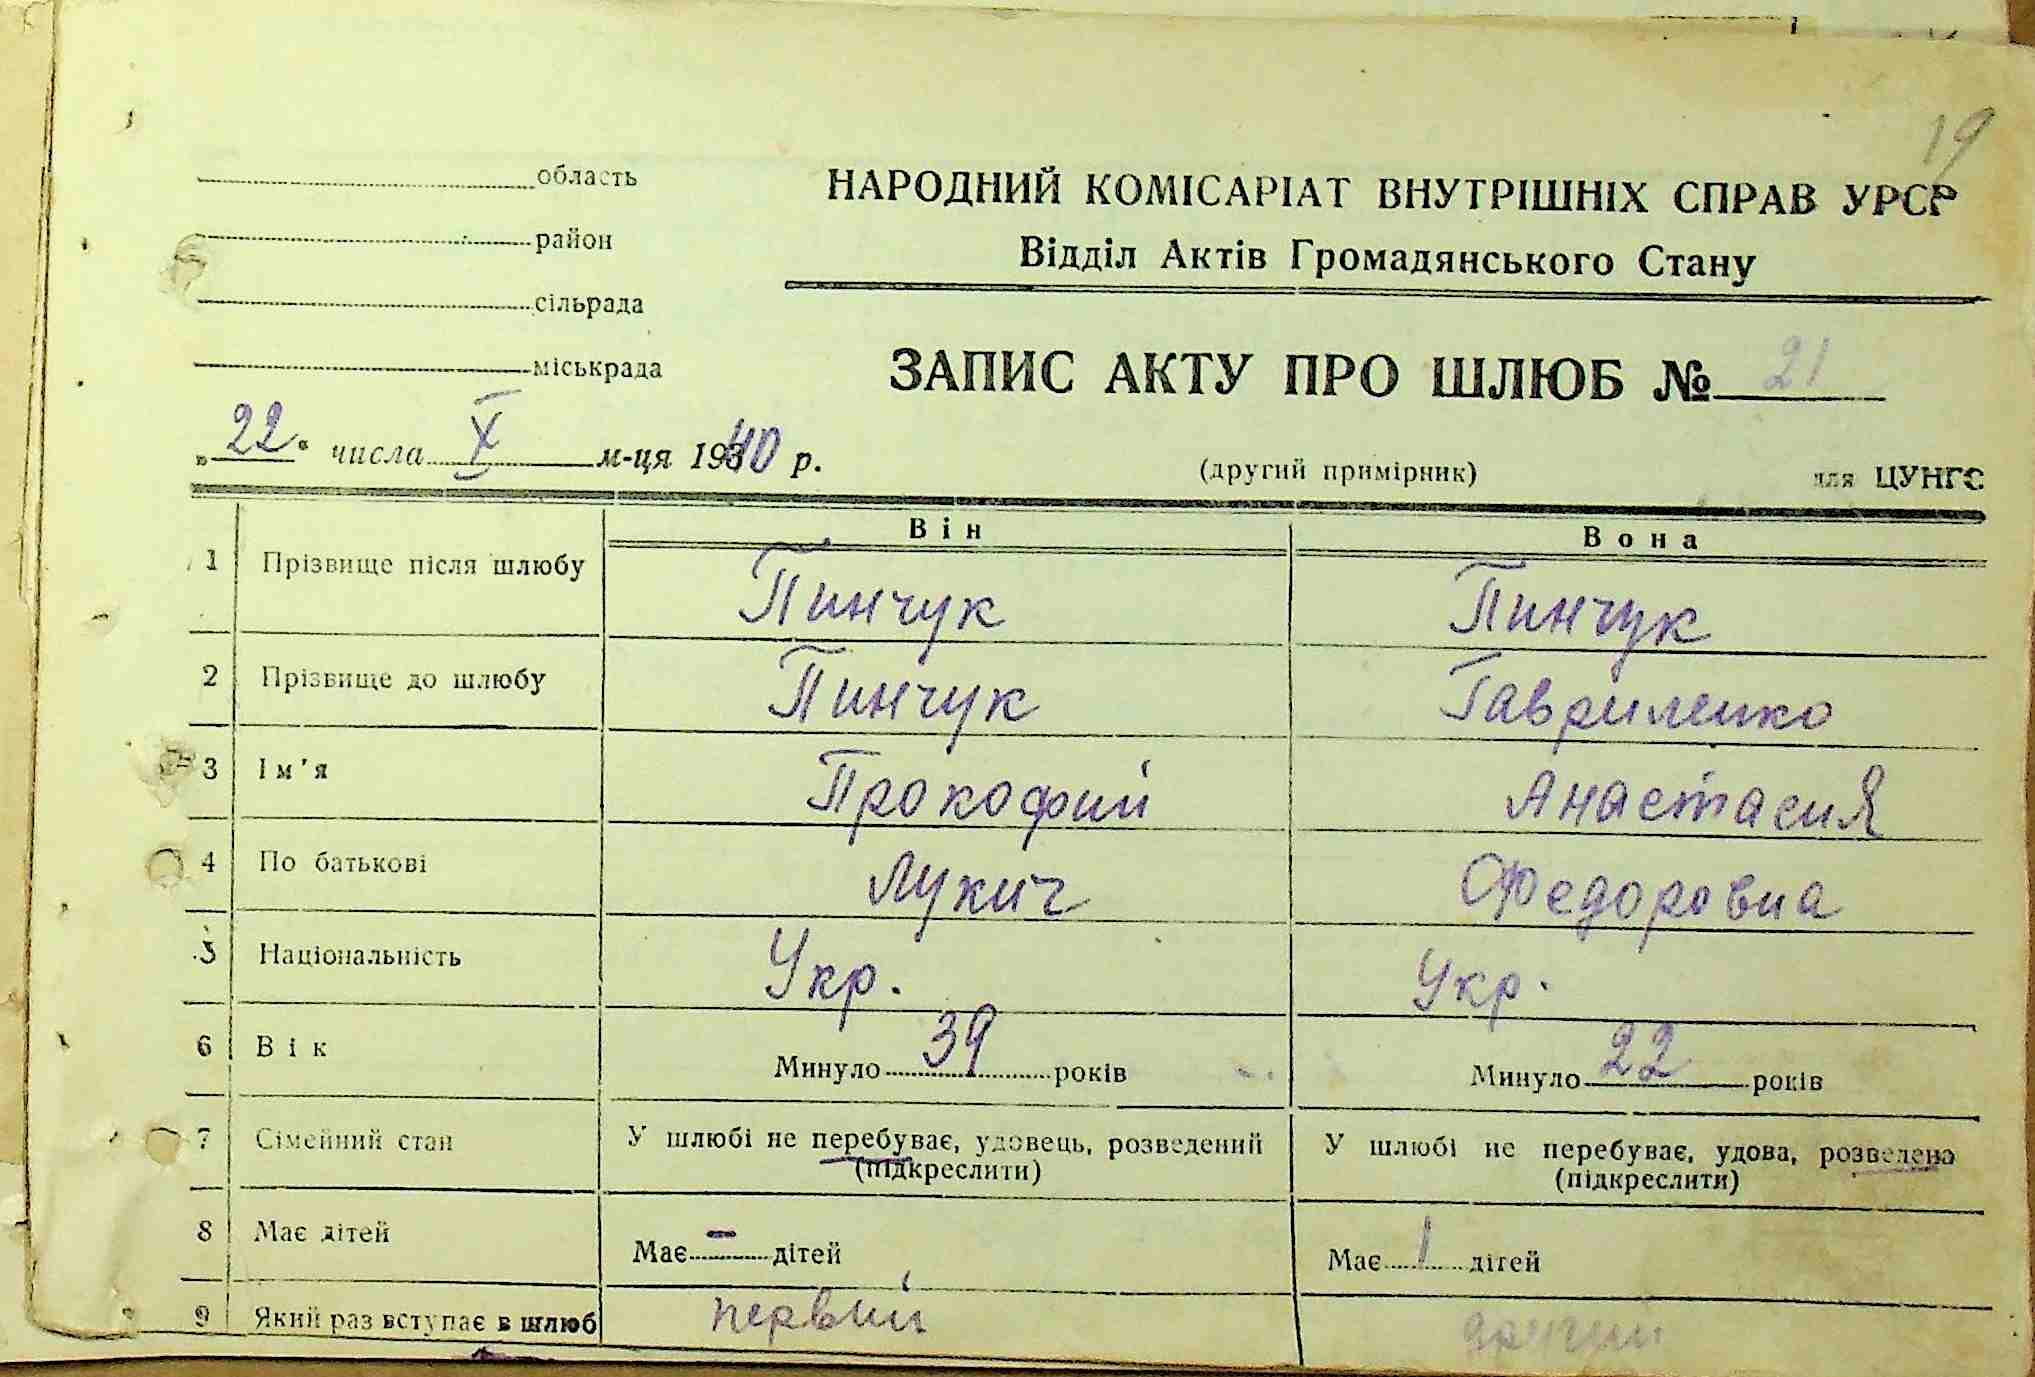 19
область
район
сільрада
міськрада
НАРОДНИЙ КОМІСАРІАТ ВНУТРІШНІХ СПРАВ УРСР
Відділ Актів Громадянського Стану
ЗАПИС АКТУ ПРО ШЛЮБ № 21
„22“ числа X м-ця 1940 р.
(другий примірник) для ЦУНГС
Він Вона
1 Прізвище після шлюбу Пинчук Пинчук
2 Прізвище до шлюбу Пинчук Гавриленко
3 Ім'я Прокофий Анастасия
4 По батькові Лукич Федоровна
5 Національність Укр. Укр.
6 Вік Минуло 39 років Минуло 22 років
7 Сімейний стан У шлюбі не перебуває, удовець, розведений У шлюбі не перебуває, удова, розведена
(підкреслити) (підкреслити)
8 Має дітей Має - дітей Має 1 дітей
9 Який раз вступає в шлюб первий другий